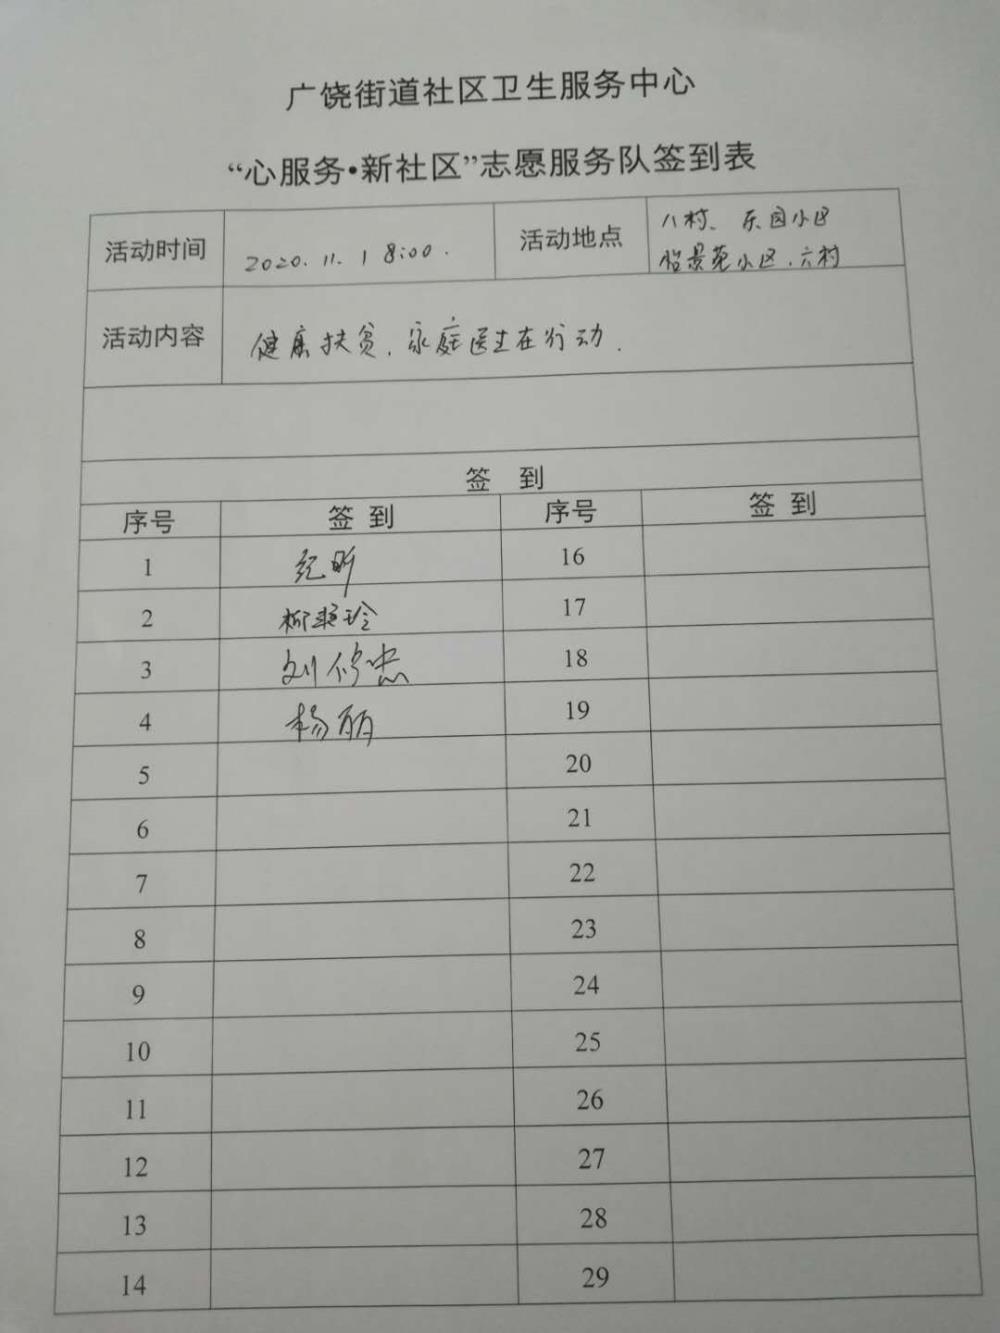 广饶街道社区卫生服务中心
“心服务•新社区”志愿服务队签到表
活动时间 2020.11.1 8:00. 活动地点 八村、乐园小区
怡景苑小区.六村
活动内容 健康扶贫.家庭医生在行动.
签 到
序号 签 到 序号 签 到
1 纪昕 16
2 柳翠玲 17
3 刘修忠 18
4 杨丽 19
5 20
6 21
7 22
8 23
9 24
10 25
11 26
12 27
13 28
14 29